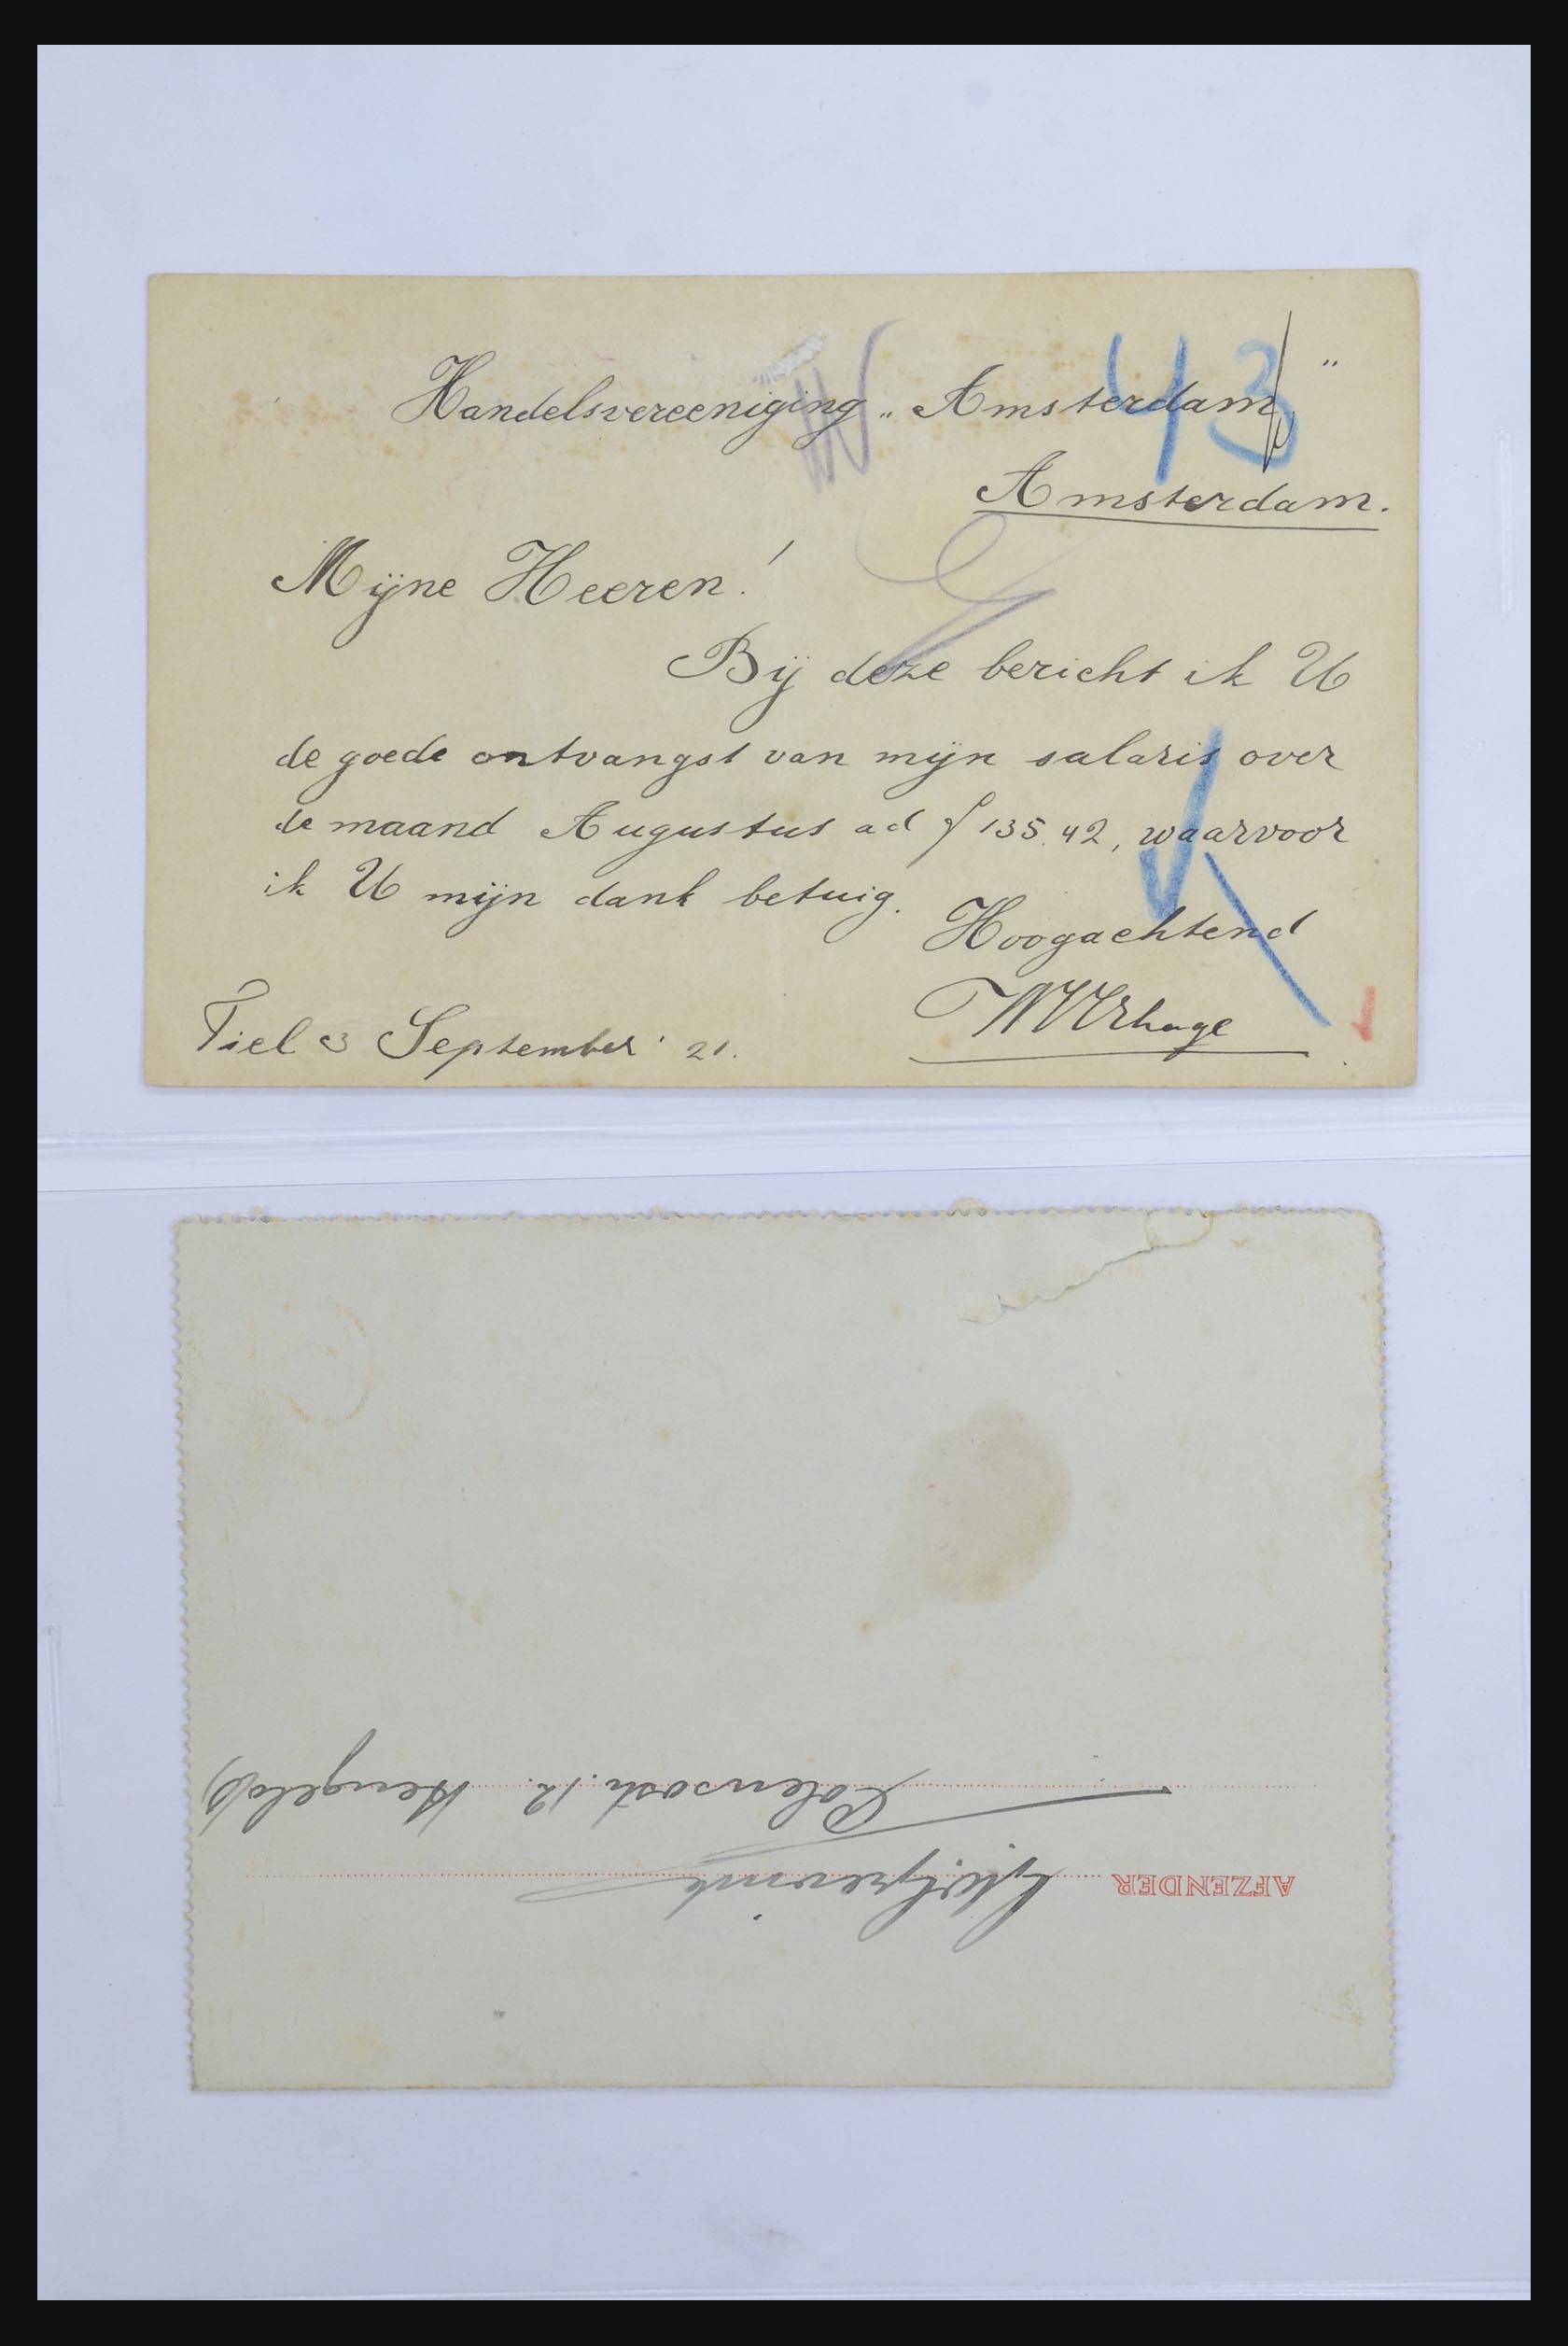 Handelsvereeniging „Amsterdam”
43
Amsterdam.
Mijne Heeren!
Bij deze bericht ik U
de goede ontvangst van mijn salaris over
de maand Augustus ad ƒ 135.42, waarvoor
ik U mijn dank betuig.
Hoogachtend
Tiel 3 September '21.
AFZENDER
12. Hengelo